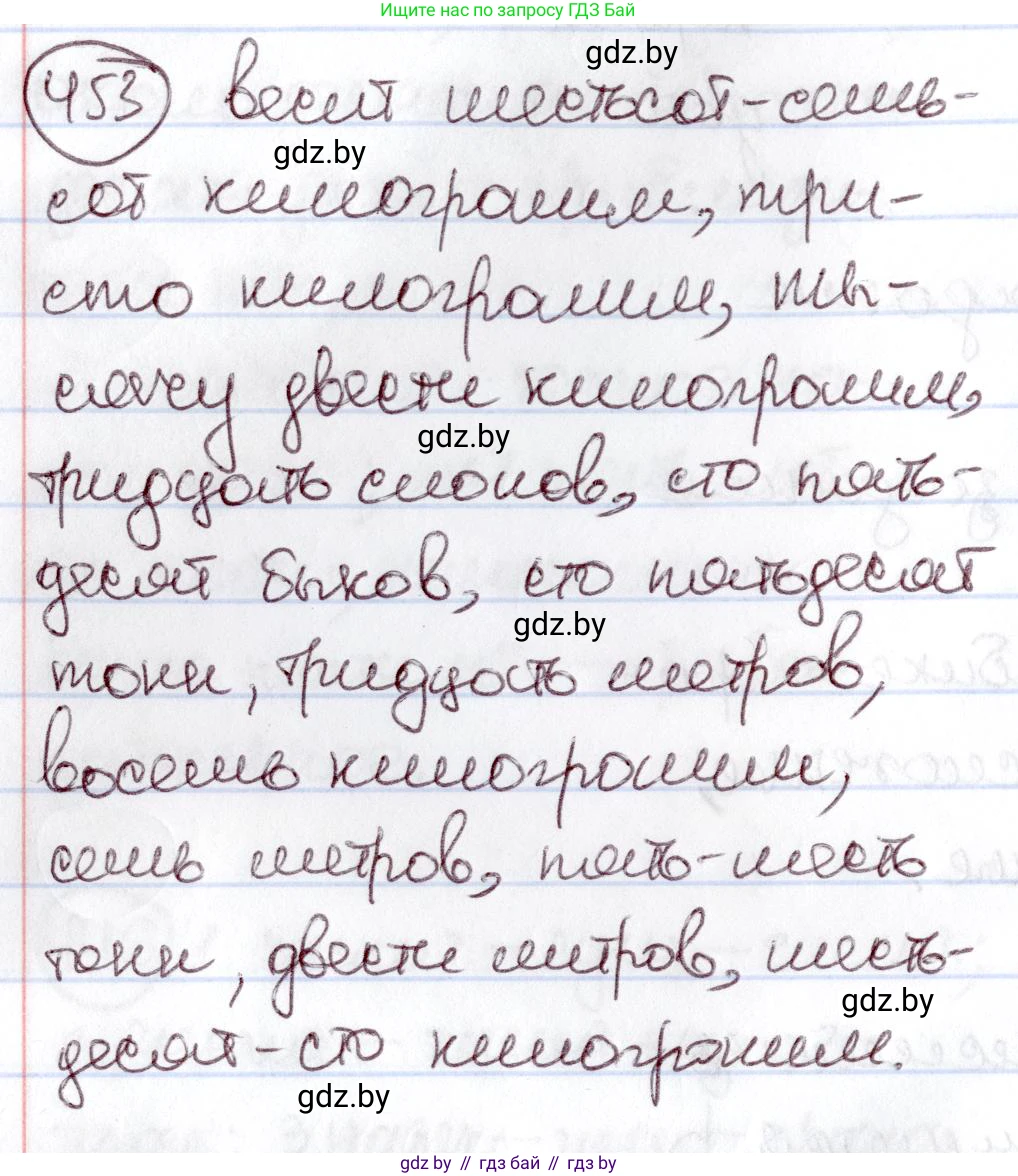 Ищите нас по запросу ГДЗ Бай
gdz.by
453 весит шестьсот-семь-
gdz.by
сот килограмм, три-
сто килограмм, ты-
сячу двести килограмм,
gdz.by
тридцать слонов, сто пять-
десят быков, сто пятьдесят
gdz.by
тонн, тридцать метров,
восемь килограмм,
семь метров, пять-шесть
тонн, двести литров, шесть-
gdz.by
десят-сто килограмм.
gdz.by
gdz.by // гдз бай // гдз by